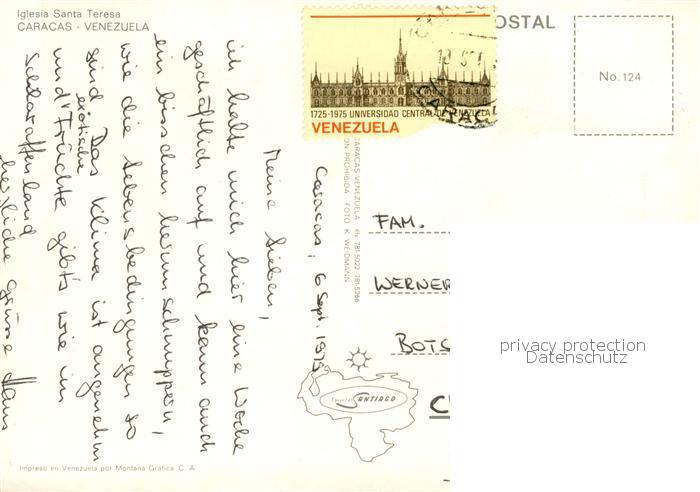 Iglesia Santa Teresa
CARACAS - VENEZUELA
POSTAL
No. 124
1725-1975 UNIVERSIDAD CENTRAL DE VENEZUELA
VENEZUELA
CARACAS VENEZUELA tfs. 781-5022 - 781-5266
ON PROHIBIDA FOTO K. WEIDMANN
Caracas, 6 Sept. 1975
Meine Lieben,
ich halte mich hier eine Woche
geschäftlich auf und kann auch
ein bisschen herumschnuppern,
wie die Lebensbedingungen so
sind. Das Klima ist angenehm
und exotische Früchte gibt's wie im
Schlaraffenland
herzliche Grüsse Hans
FAM.
WERNER
BOTS
privacy protection
Datenschutz
Tarjetas SANTIAGO
Impreso en Venezuela por Montana Gráfica C. A.